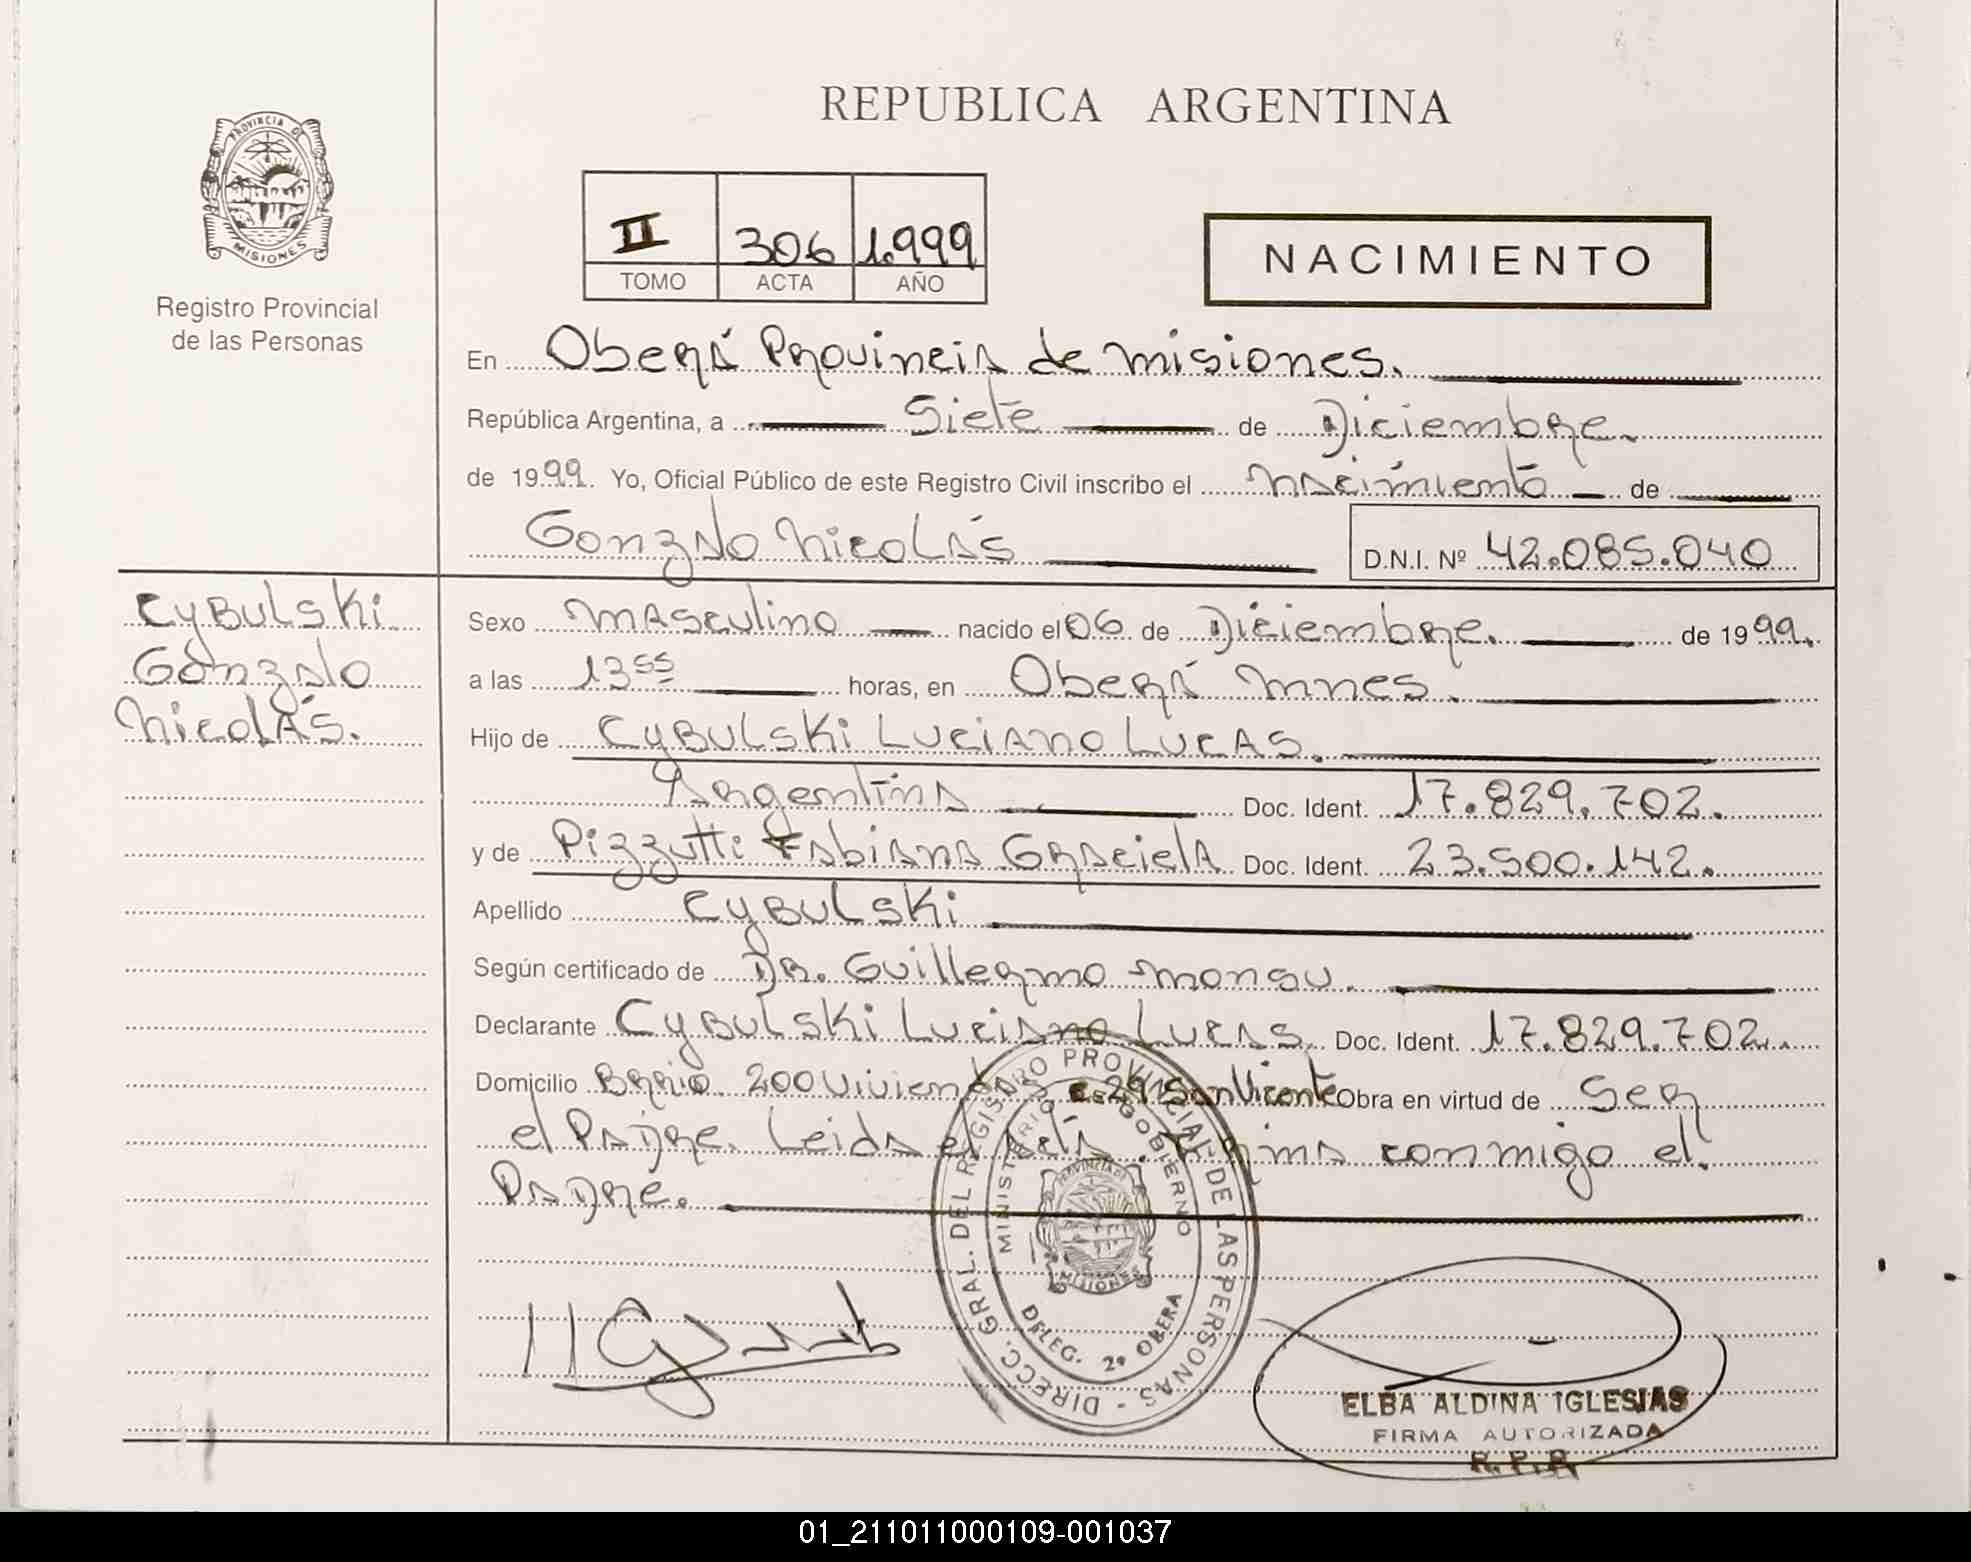 REPUBLICA ARGENTINA
PROVINCIA DE
MISIONES
Registro Provincial
de las Personas
II 306 1.999
TOMO ACTA AÑO
NACIMIENTO
En Oberá Provincia de Misiones.
República Argentina, a Siete de Diciembre.
de 1999. Yo, Oficial Público de este Registro Civil inscribo el nacimiento de
Gonzalo Nicolás D.N.I. Nº 42.085.040
Cybulski
Gonzalo
Nicolás.
Sexo Masculino nacido el 06 de Diciembre. de 1999.
a las 13 55 horas, en Oberá Mnes.
Hijo de Cybulski Luciano Lucas.
Argentina Doc. Ident. 17.829.702.
y de Pizzutti Fabiana Graciela Doc. Ident. 23.500.142.
Apellido Cybulski
Según certificado de Dr. Guillermo
Declarante Cybulski Luciano Lucas. Doc. Ident. 17.829.702.
Domicilio Barrio 200 Viviendas San Vicente Obra en virtud de Ser
el Padre. Leida el Acta. Firma conmigo el
Padre.
DIRECC. GRAL. DEL REGISTRO PROVINCIAL DE LAS PERSONAS -
MINISTERIO DE GOBIERNO
PROVINCIA DE
MISIONES
DELEG. 2º OBERA
ELBA ALDINA IGLESIAS
FIRMA AUTORIZADA
R.P.P.
01_211011000109-001037